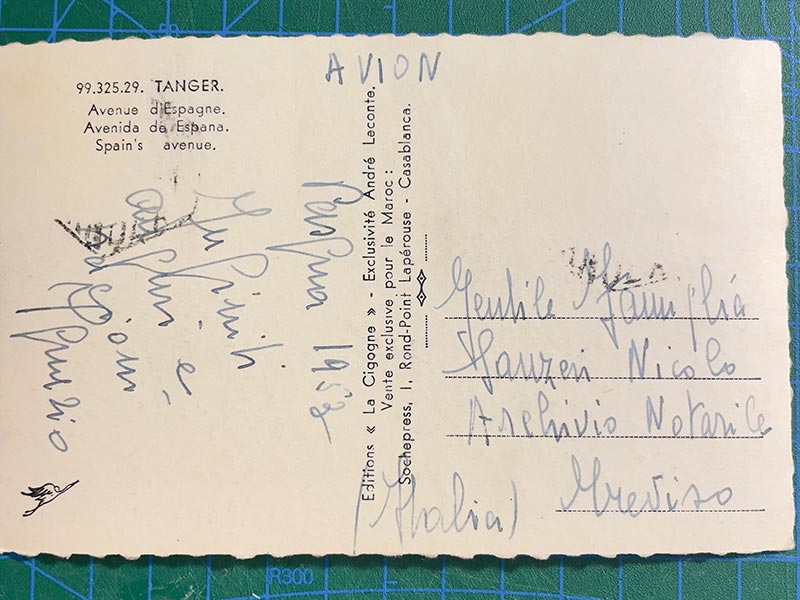 AVION
99.325.29. TANGER.
Avenue d'Espagne.
Avenida de Espana.
Spain's avenue.
Pasqua 1952
e
Editions « La Cigogne » - Exclusivité André Leconte.
Vente exclusive pour le Maroc :
Sochepress, 1, Rond-Point Lapérouse - Casablanca.
Gentile Famiglia
Nicolo
Archivio Notarile
Treviso
(Italia)
R300